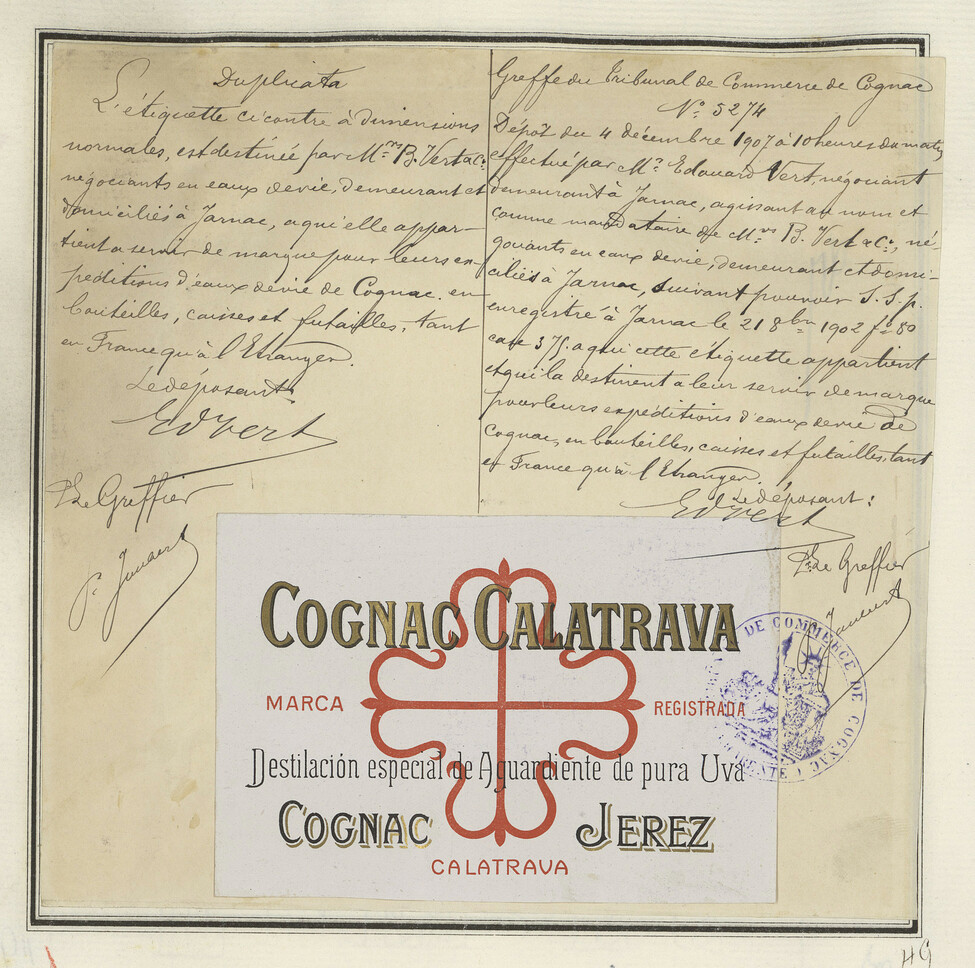 Duplicata
L'étiquette ci contre à dimensions
normales, est destinée par M.rs B. Vert & Co
négociants en eaux de vie, demeurant et
domiciliés à Jarnac, a qu'elle appar-
tient a servir de marque pour leurs ex-
péditions d'eaux de vie de Cognac. en
bouteilles, caisses et futailles, tant
en France qu'à l'Etranger.
Le déposant
Ed Vert
Pr Le Greffier
Greffe du Tribunal de Commerce de Cognac
No. 5274
Dépôt du 4 décembre 1907 à 10 heures du matin
effectué par Mr. Edouard Vert, négociant
demeurant à Jarnac, agissant au nom et
comme mandataire de M.rs B. Vert & Co, né-
gociants en eaux de vie, demeurant et domi-
ciliés à Jarnac, suivant pouvoir S. S. p.
enregistré à Jarnac le 21 8bre 1902 fo 80
case 375. a qui cette étiquette appartient
et qui la destinent a leur servir de marque
pour leurs expéditions d'eaux de vie de
Cognac, en bouteilles, caisses et futailles, tant
en France qu'à l'Etranger.
Le déposant :
Ed Vert
Pr Le Greffier
COGNAC CALATRAVA
MARCA REGISTRADA
Destilación especial de Aguardiente de pura Uva
COGNAC JEREZ
CALATRAVA
DE COMMERCE DE COGNAC
49